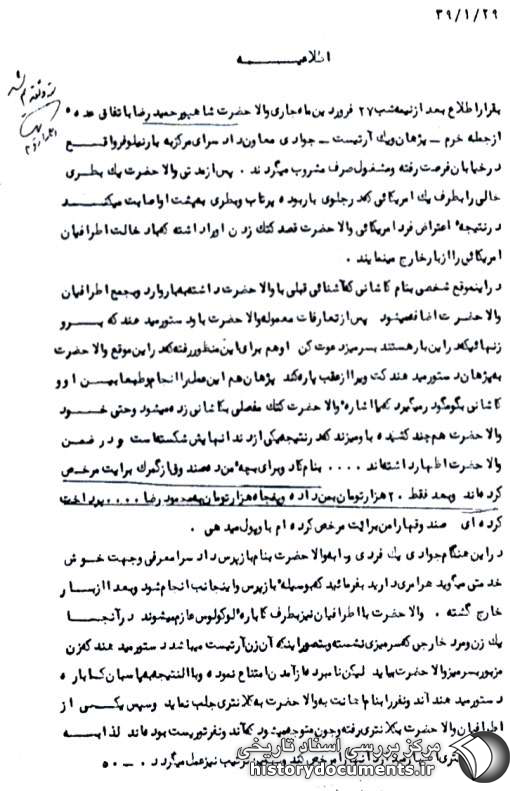 ۳۹/۱/۲۹
اطلاعیــــه
بقرار اطلاع بعد از نیمه شب ۲۷ فروردین ماه جاری والا حضرت شاهپور حمید رضا باتفاق عده ه
ازجمله خرم ــ پژهان ویک آرتیست ــ جوادی معاون دادسرای مرکز به بار نیلوفر واقــع
درخیابان فرصت رفته ومشغول صرف مشروب میگردند . پس از مدتی والا حضرت یک بطــری
خالی را بطرف یک امریکائی که در جلوی بار بوده پرتاب وبطری به پشت او اصابت میکنــــد
درنتیجه اعتراض فرد امریکائی والا حضرت قصد کتک زدن اورا داشته که با دخالت اطرافیان
امریکائی را از بار خارج مینمایند .
دراینموقع شخصی بنام کاشانی که آشنائی قبلی با والا حضرت داشته به بار وارد وبجمع اطرافیان
والا حضرت اضافه میشود پس از تعارفات معموله والا حضرت باو دستور میدهند که بـــرو
زنهائیکه در این بار هستند بسر میز دعوت کن اوهم برای این منظور رفته که در این موقع والا حضرت
به پژهان دستور میدهند کت ویرا از عقب پاره کند پژهان هم این عمل را انجام وطبعا بیــن او و
کاشانی بگومگو در میگیرد که با اشاره والا حضرت کتک مفصلی بکاشانی زده میشود وحتی خــود
والا حضرت هم چند کشیده باو میزند که در نتیجه یکی از دندانهایش شکسته است و در ضمن
والا حضرت اظهار داشته اند .... بنام کادو برای بچه من ده صندوق از گمرک برایت مرخص
کرده اند وبعد فقط ۲۰ هزارتومان بمن داده وپنجاه هزارتومان به محمود رضا .... پرداخت
کرده ای صندوقها را من برایت مرخص کرده ام باو پول میدهی .
در این هنگام جوادی یک فردی را به والا حضرت بنام بازپرس دادسرا معرفی وجهت خــوش
خدمتی میگوید هر امری دارید بفرمائید که بوسیله بازپرس واینجانب انجام شود وبعد از بــار
خارج گشته . والا حضرت با اطرافیان نیز بطرف کاباره لوکولوس عازم میشوند در آنجــا
یک زن ومرد خارجی که سر میزی نشسته وبتصور اینکه آن زن آرتیست میباشد دستور میدهند که زن
مزبور بسر میز والا حضرت بیاید لیکن نامبرده از آمدن امتناع نموده وبالنتیجه به پاسبان کاباره
دستور میدهند آن دونفر را بنام اهانت به والا حضرت به کلانتری جلب نماید وسپس یکــی از
اطرافیان والا حضرت بکلانتری رفته وچون متوجه میشود که آن دونفر توریست بوده اند لذا بـه
آنها را مرخص کند وبهمین ترتیب نیز عمل میگردد . ــ ۵۰
مرکز بررسی اسناد تاریخی
historydocuments.ir